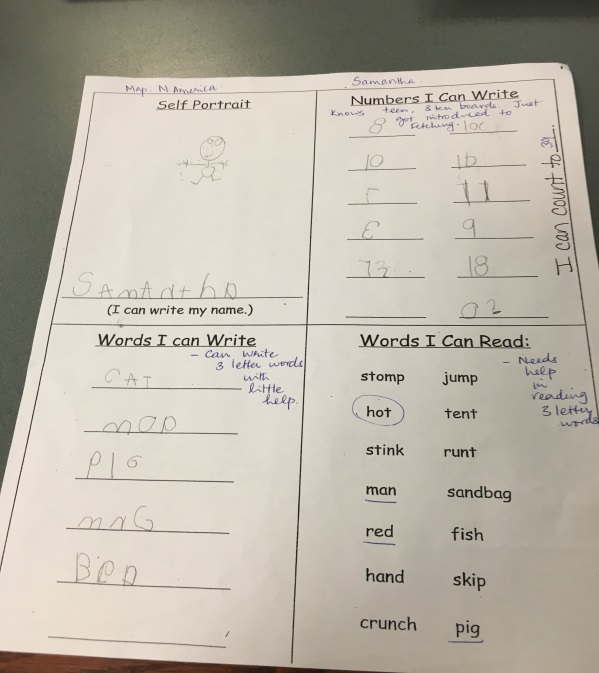 Map: N America
Samantha
Self Portrait
SAmANthA
(I can write my name.)
Numbers I Can Write
Knows teen, & ten boards. Just
got introduced to
fetching.
8 100
10 16
11
9
73 18
02
I can count to 39.
Words I can Write
- Can write
3 letter words
with
little
help.
CAT
mOP
PIG
BED
Words I Can Read:
- Needs
help
in
reading
3 letter
words
stomp jump
hot tent
stink runt
man sandbag
red fish
hand skip
crunch pig